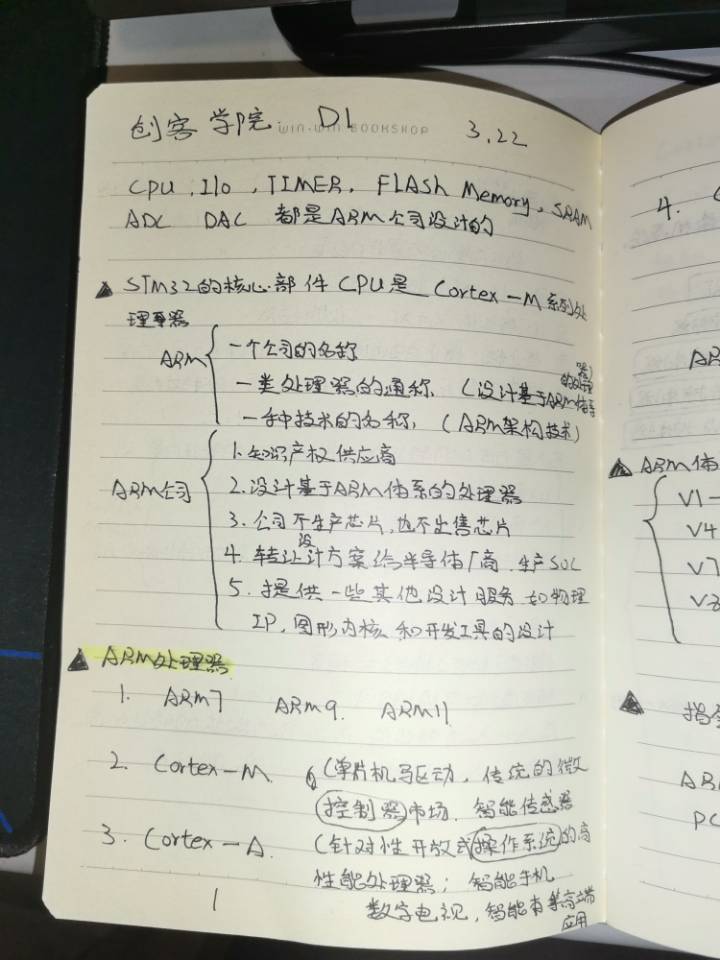 创客学院 D1 3.22
WIN-WIN BOOKSHOP
CPU, I/O, TIMER, FLASH Memory, SRAM
ADC DAC 都是ARM公司设计的
▲ STM32的核心部件CPU是 Cortex-M 系列处
理器
ARM
一个公司的名称
一类处理器的通称 (设计基于ARM体系
的处理器)
一种技术的名称, (ARM架构技术)
ARM公司
1. 知识产权供应商
2. 设计基于ARM体系的处理器
3. 公司不生产芯片, 也不出售芯片
4. 转让设计方案给半导体厂商, 生产SOC
5. 提供一些其他设计服务 如物理
IP, 图形内核和开发工具的设计
▲ ARM处理器
1. ARM7 ARM9. ARM11
2. Cortex-M (单片机驱动, 传统的微
控制器市场. 智能传感器
3. Cortex-A. (针对性开放式操作系统的高
性能处理器; 智能手机
数字电视, 智能本等高端
应用
1
4.
AR
▲ ARM体
V1-
V4
V7
▲ 指令
AR
PC